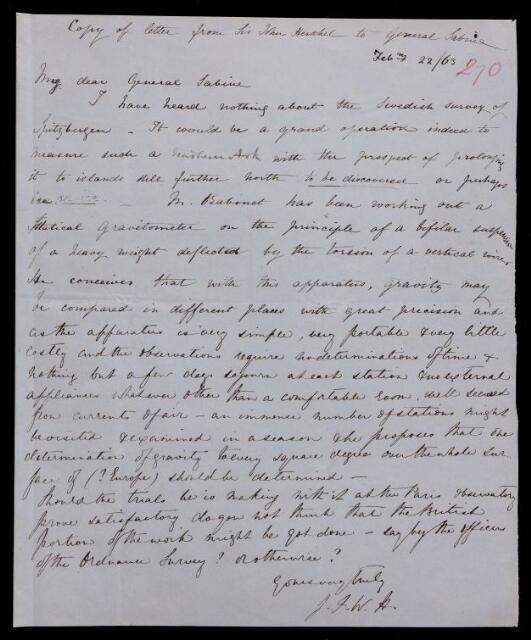 Copy of letter from Sir John Herschel to General Sabine
Feb ry 22/63
270
My dear General Sabine
I have heard nothing about the Swedish survey of
Spitzbergen – It would be a grand operation indeed to
measure such a Northern Arch with the prospect of prolonging
it to islands still further north to be discovered or perhaps
M. Babinet has been working out a
Statical Gravitometer on the principle of a bifilar suspension
of a heavy weight deflected by the torsion of a vertical wire.
He conceives that with this apparatus, gravity may
be compared in different places with great precision and
as the apparatus is very simple, very portable & very little
costly and the observations require no determinations of time &
nothing but a few days sojourn at each station & no external
appliances whatever other than a comfortable room, well secured
from currents of air – an immense number of stations might
be visited & examined in a season & he proposes that one
determination of gravity to every square degree over the whole sur-
face of (? Europe) should be determined –
Should the trials he is making with it at the Paris Observatory
prove satisfactory, do you not think that the British
portion of the work might be got done – say by the officers
of the Ordnance Survey? or otherwise?
Yours very truly
J. F. W. H.